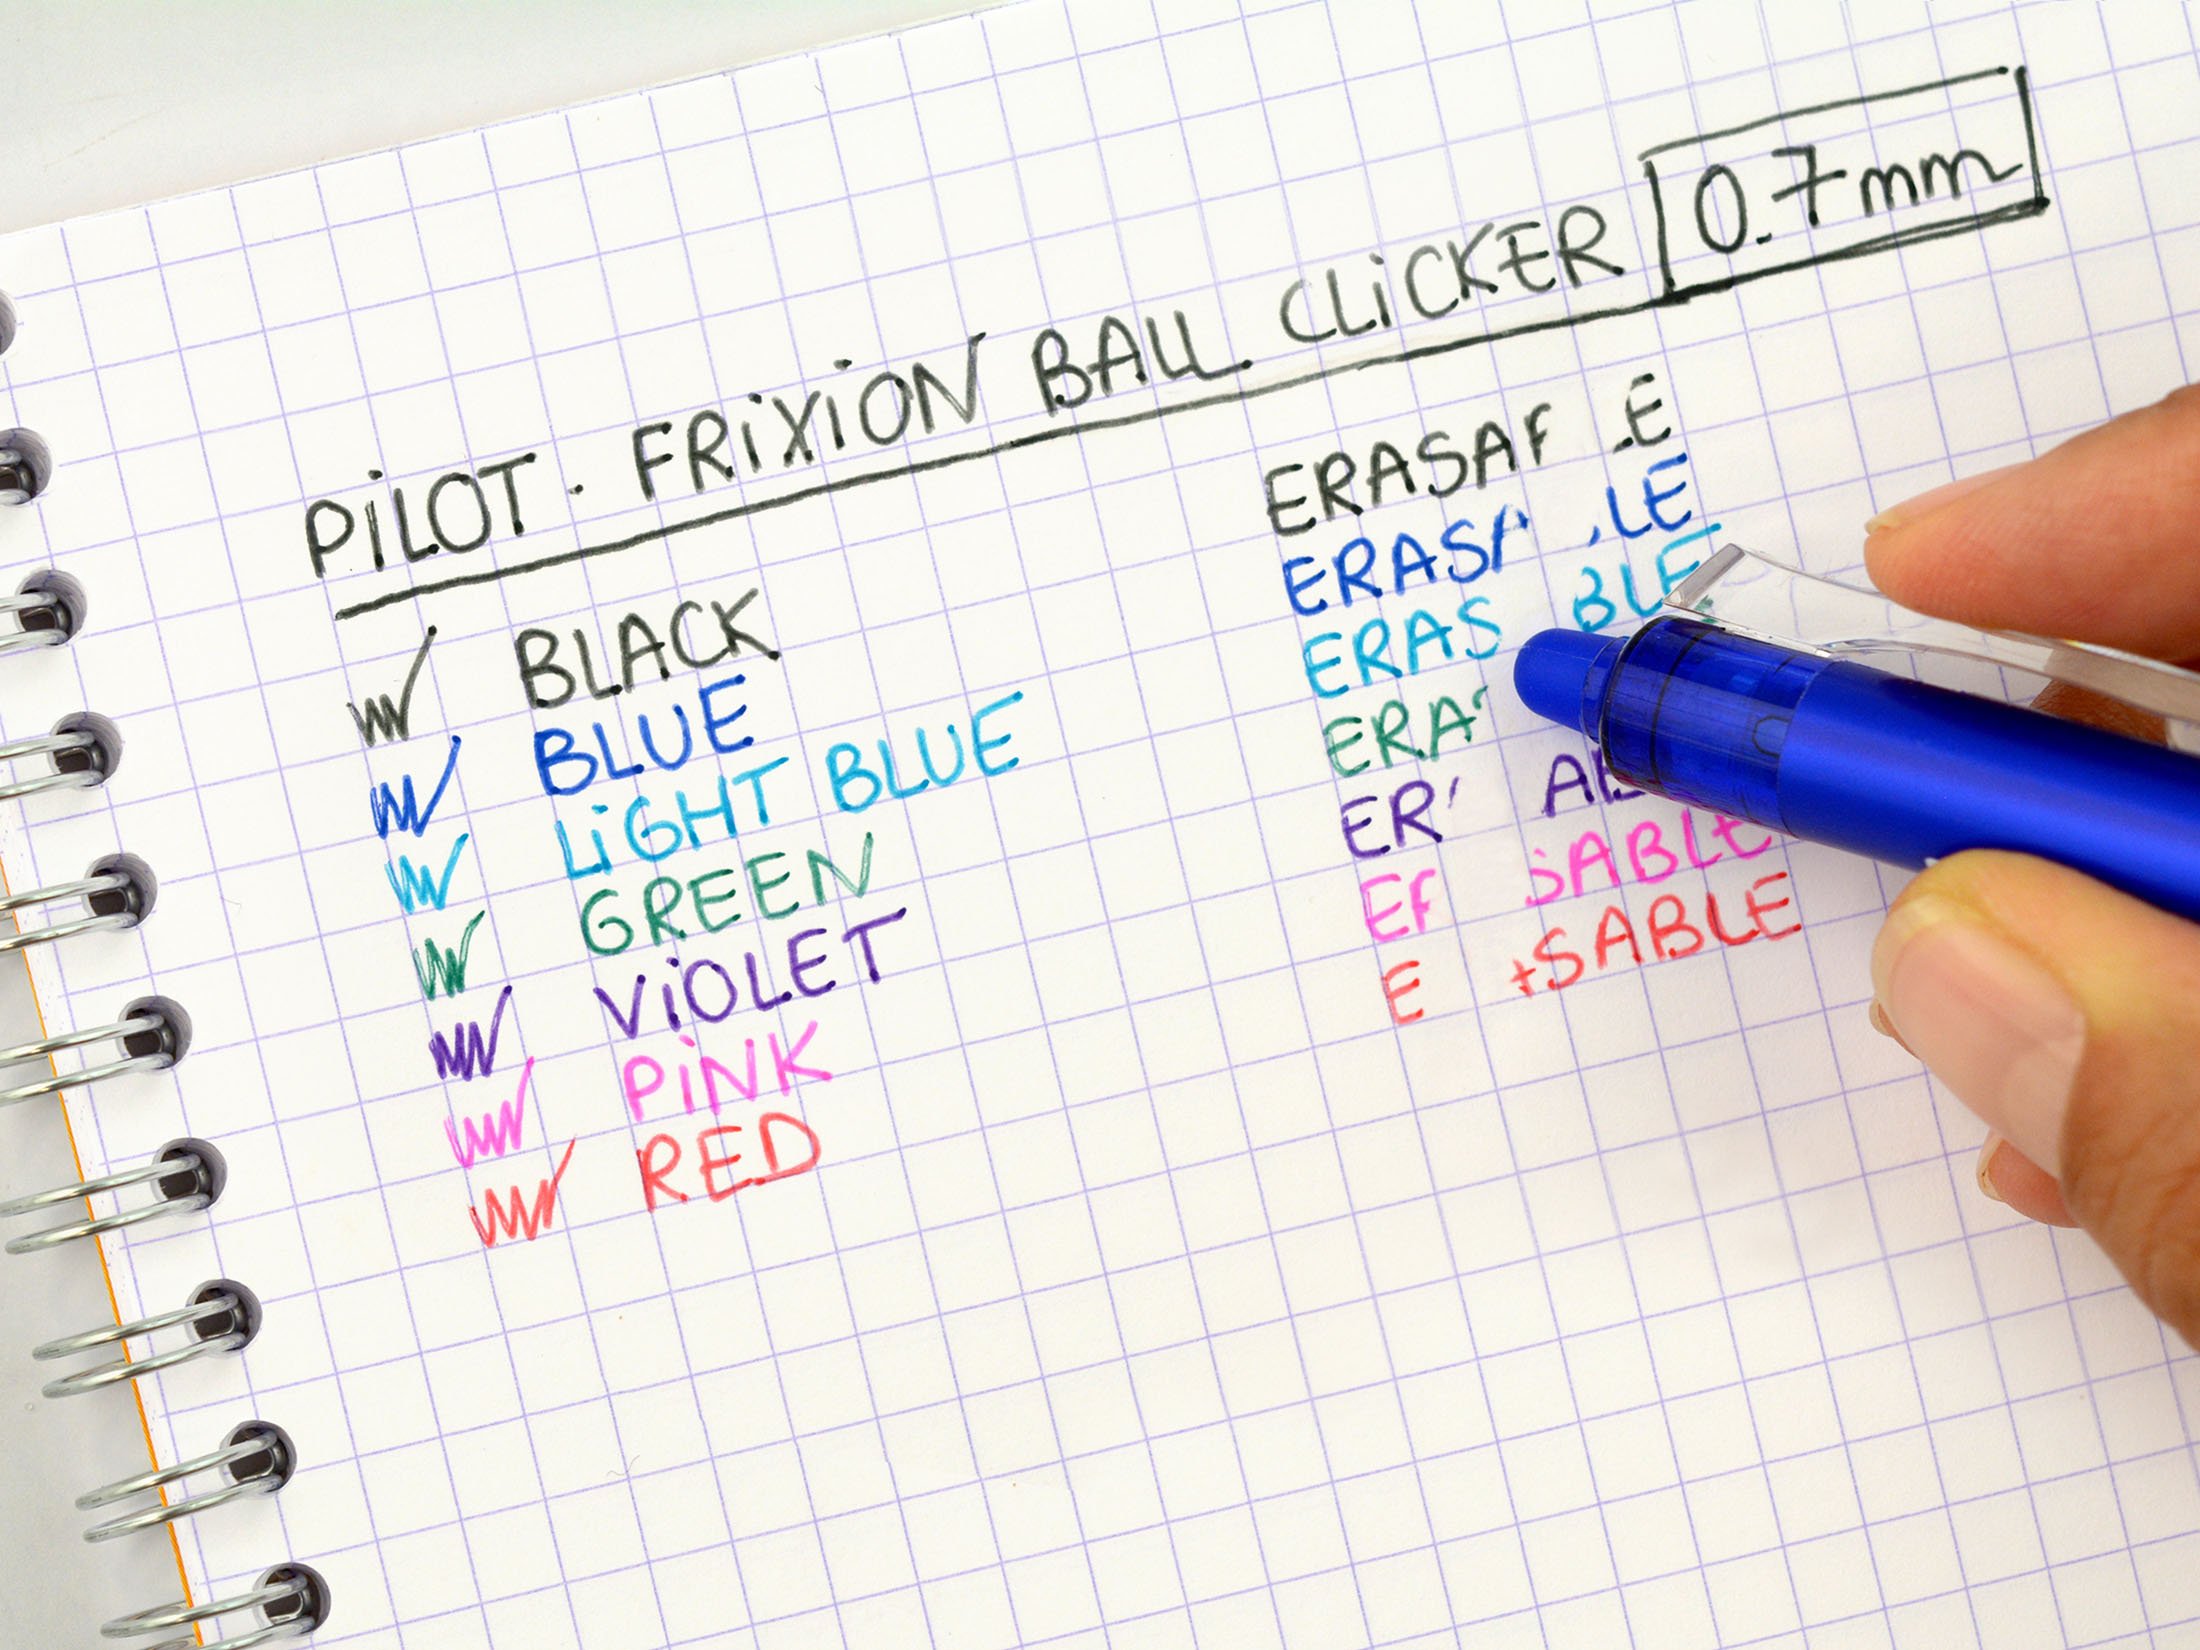 PiLOT. FRiXiON BALL CLiCKER 0.7mm
BLACK
BLUE
LiGHT BLUE
GREEN
ViOLET
PiNK
RED
E
LE
ERAS BLE
ERA
ER
SABLE
E SABLE